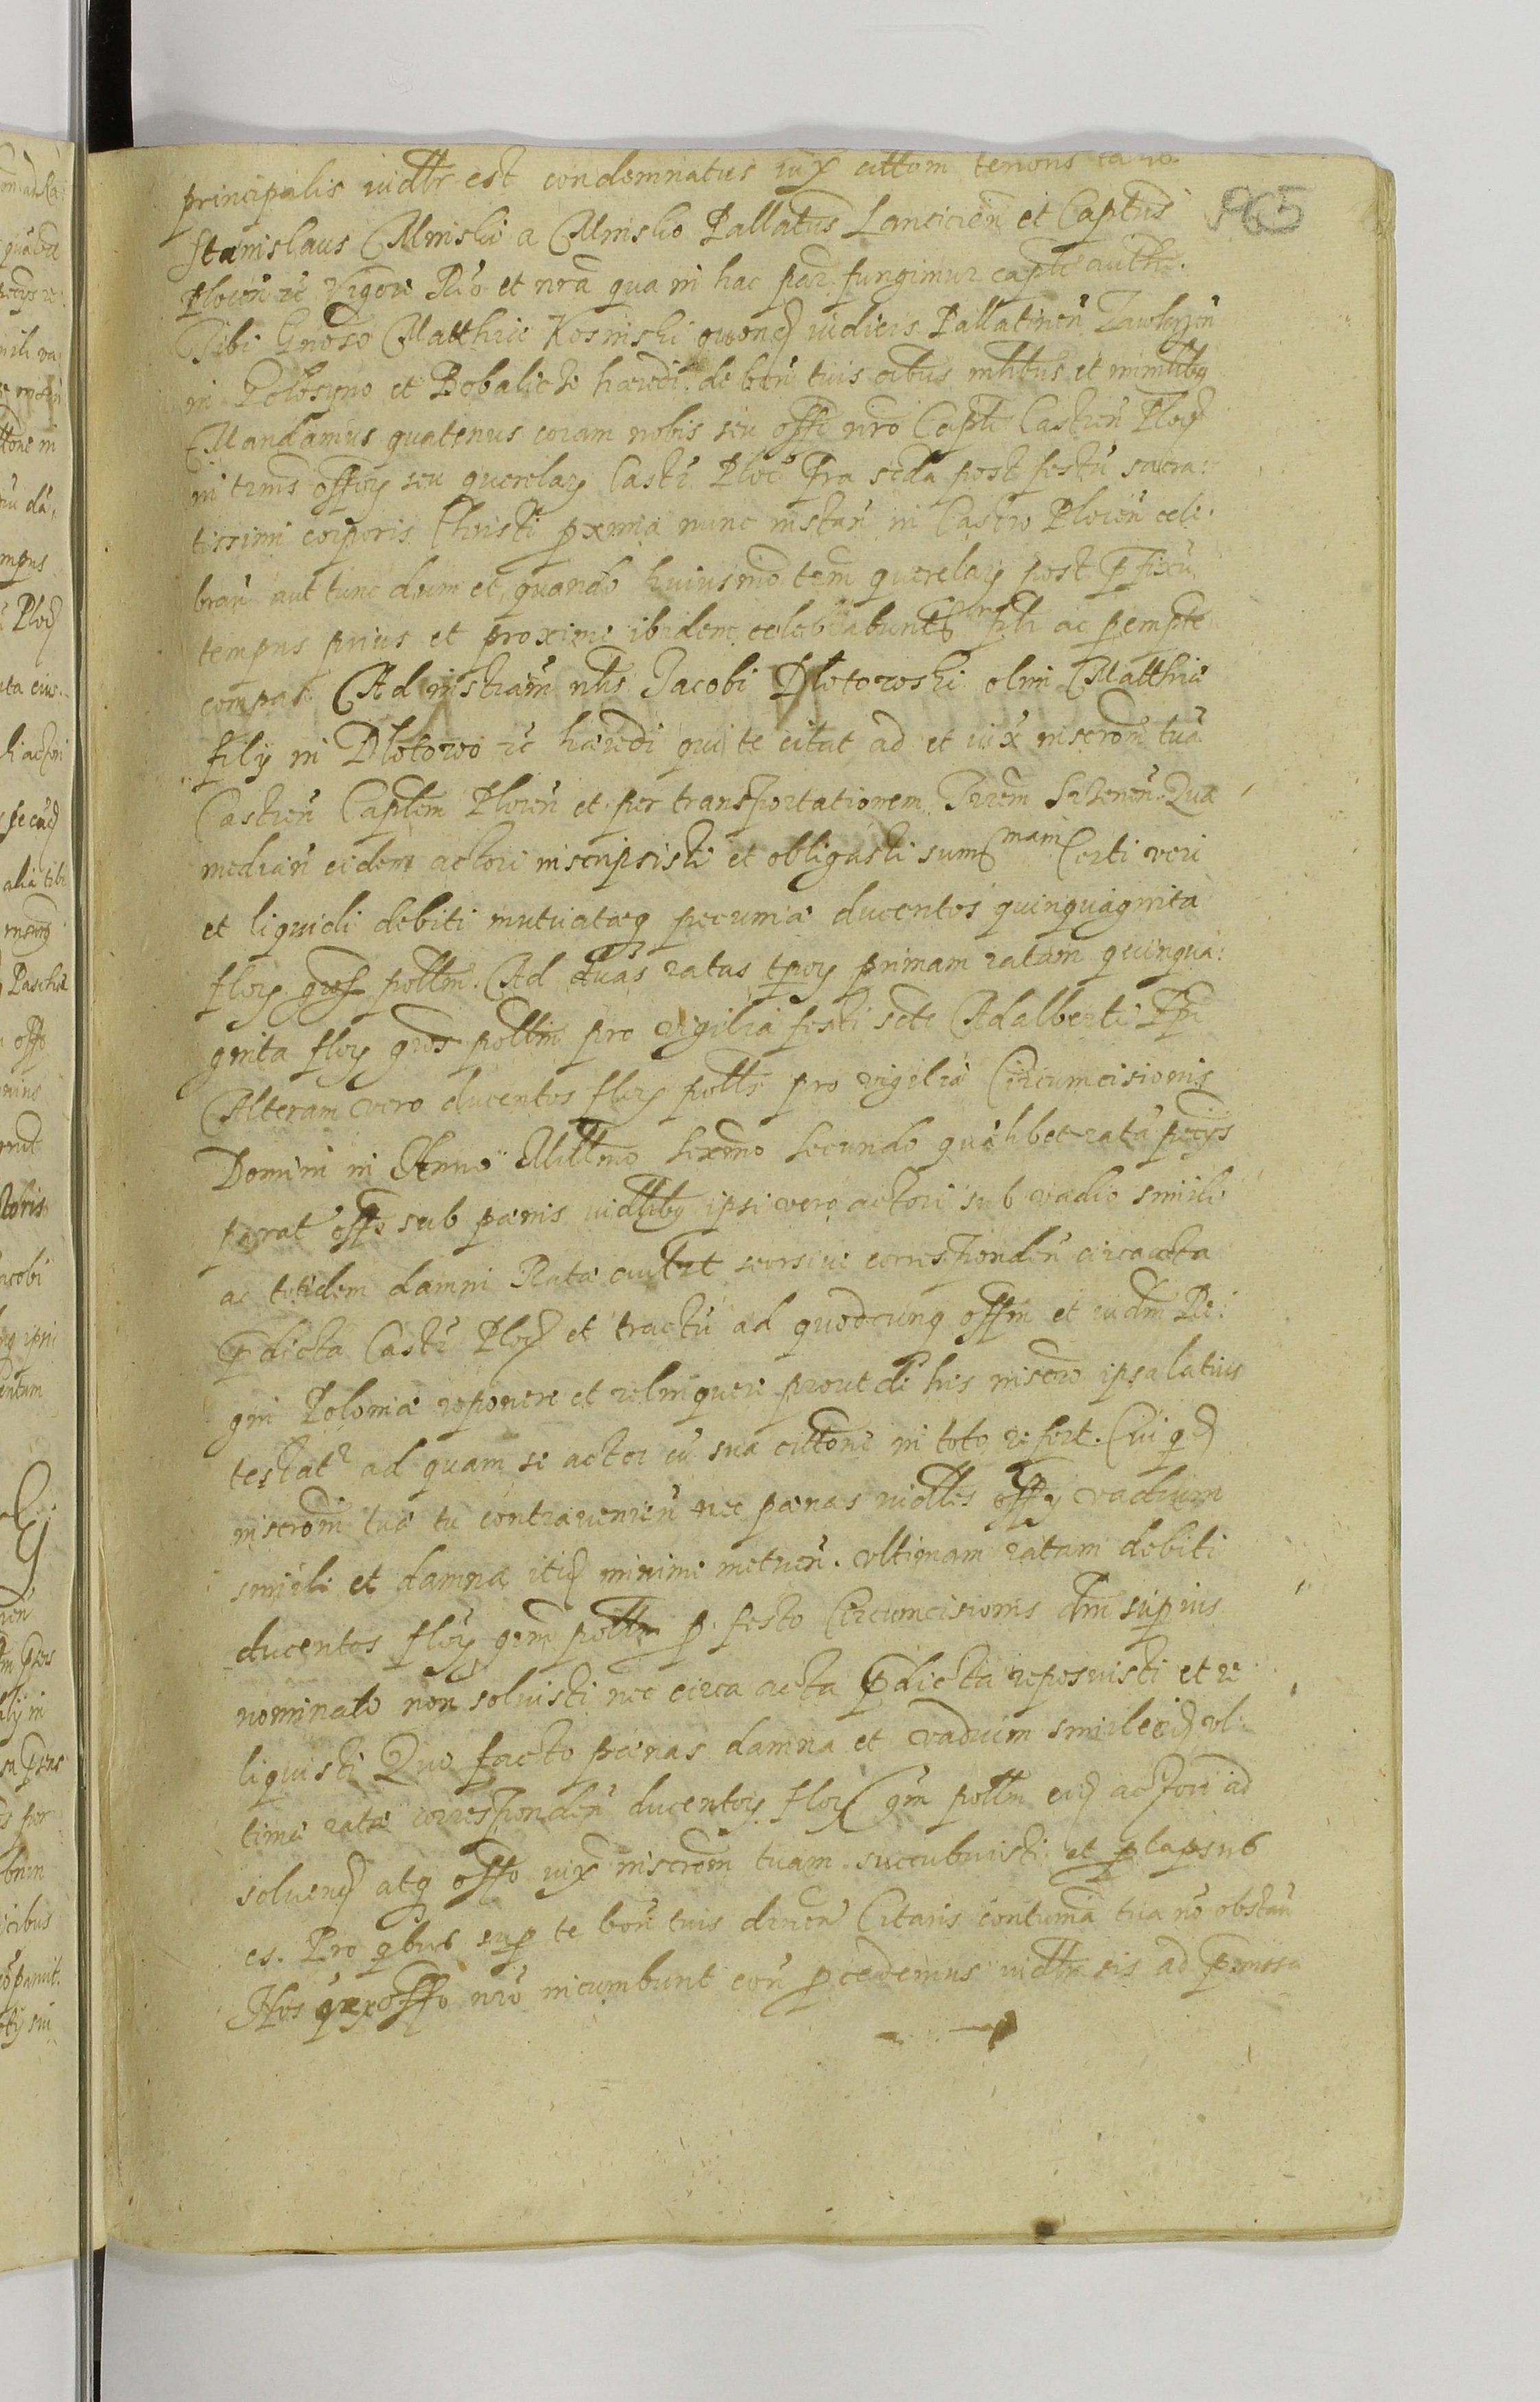 principalis vidttr est condemnatus iux cittom tenoris
Stanislaus Minski a Minsko Pallatus Lancicien et Captus
Plocen zc Vigore Rio et nra qua in hac par fungimur capli autho.
Tibi Gnoso Matthie Kosinski quond iudicis Pallatinen
in et Bobalicze haeredi de bon tuis oibus mltbus et immltbq
Mandamus quatenus coram nobis seu offo nro Capli Castren Ploc
in trmis offiy seu querelay Castr Ploc fra scda post festu sacra:
tissimi corporis Christi pxima nunc instan in Castro Plocen cele:
bran aut tunc dum et quando huiusmo trm querelay post pfixu
tempus prius et proxime ibidem celebrabuntr plr ac pempte
compas. Ad instiam nlis Jacobi Dlotowski olim Matthie
filÿ in Dlotowo zc haeredi qui te citat ad et iux inscrom tua
Castren Caplem Plocen et per transportationem Trrem Qua
median eidem actori inscripsisti et obligasti summam Certi veri
et liquidi debiti mutuataeq pecuniae ducentos quinquaginta
floy gros pollm. Ad duas ratas tpoy primam ratam quinqua:
ginta floy gros pollm pro vigilia festi scti Adalberti
Alteram vero ducentos floy pollm pro vigilia Circumcisionis
Domini in Anno Millmo Sexmo Secundo qualibet rata pecys
parat offo sub paenis vidltbq ipsi vero actori sub vadio simili
ac totidem damni Ratae cuilzt seorsive corresponden circa acta
pdicta Castr Ploc et tractu ad quodcunq offm et iudm Re:
gni Poloniae reponere et relinquere prout de his inscro ipsa latius
testatr ad quam se actor cu sua cittone in toto refert. Cui qd
inscromi tuae tu contravenien nec paenas vidlles offy vadium
simile et damna itid minime metuen. ultimam ratam debiti
ducentos floy grm pollm p festo Circumcisionis dni superius
nominato non solvisti nec circa acta pdicta reposuisti et re
liquisti Quo facto paenas damna et vadium simile eid ul:
timae ratae corresponden ducentoy floy grm pollm eid actori ad
solvend atq offo iux inscrom tuam succubuisti et plapsus
es. Pro qbus sup te bon tuis Citaris contuma tua no obstan
Nos q ex offo nro incumbunt con pcedemus vidttr sis ad pmissa